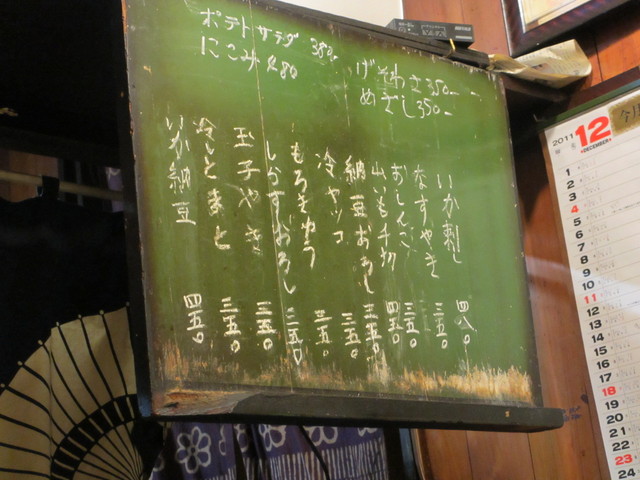 ポテトサラダ 380
にこみ 280
げそわさ 350
めざし 350
いか刺し 四八〇
なすやき 三五〇
おしんこ 三五〇
山いも千切 四五〇
納豆おろし 三五〇
冷ヤッコ 三五〇
もろきゅう 三五〇
しらすおろし 三五〇
玉子やき 三五〇
冷しとまと 三五〇
いか納豆 四五〇
2011 12
DECEMBER
今月
1
2
3
4
5
6
7
8
9
10
11
12
13
14
15
16
17
18
19
20
21
22
23
24